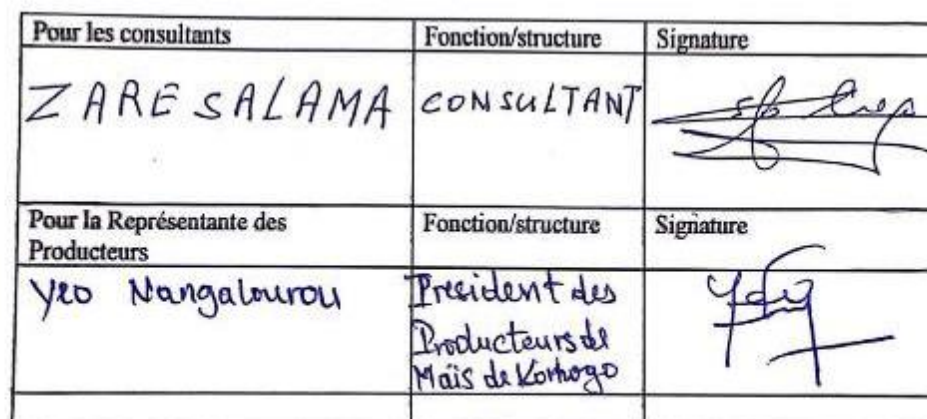 Pour les consultants Fonction/structure Signature
ZARE SALAMA CONSULTANT
Pour la Représentante des Fonction/structure Signature
Producteurs
Yeo Nangalourou President des
Producteurs de
Maïs de Korhogo